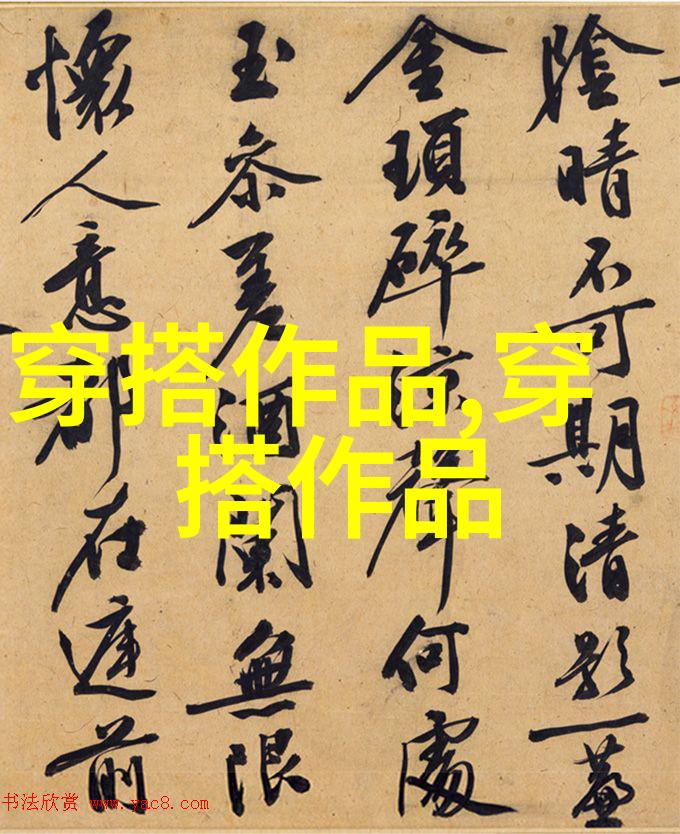 陰晴不可期清影一
金瑣碎涼聲何處
玉參差酒闌無限
懷人意都在庭前
穿搭作品,穿
搭作品
书法欣赏 www.yac8.com